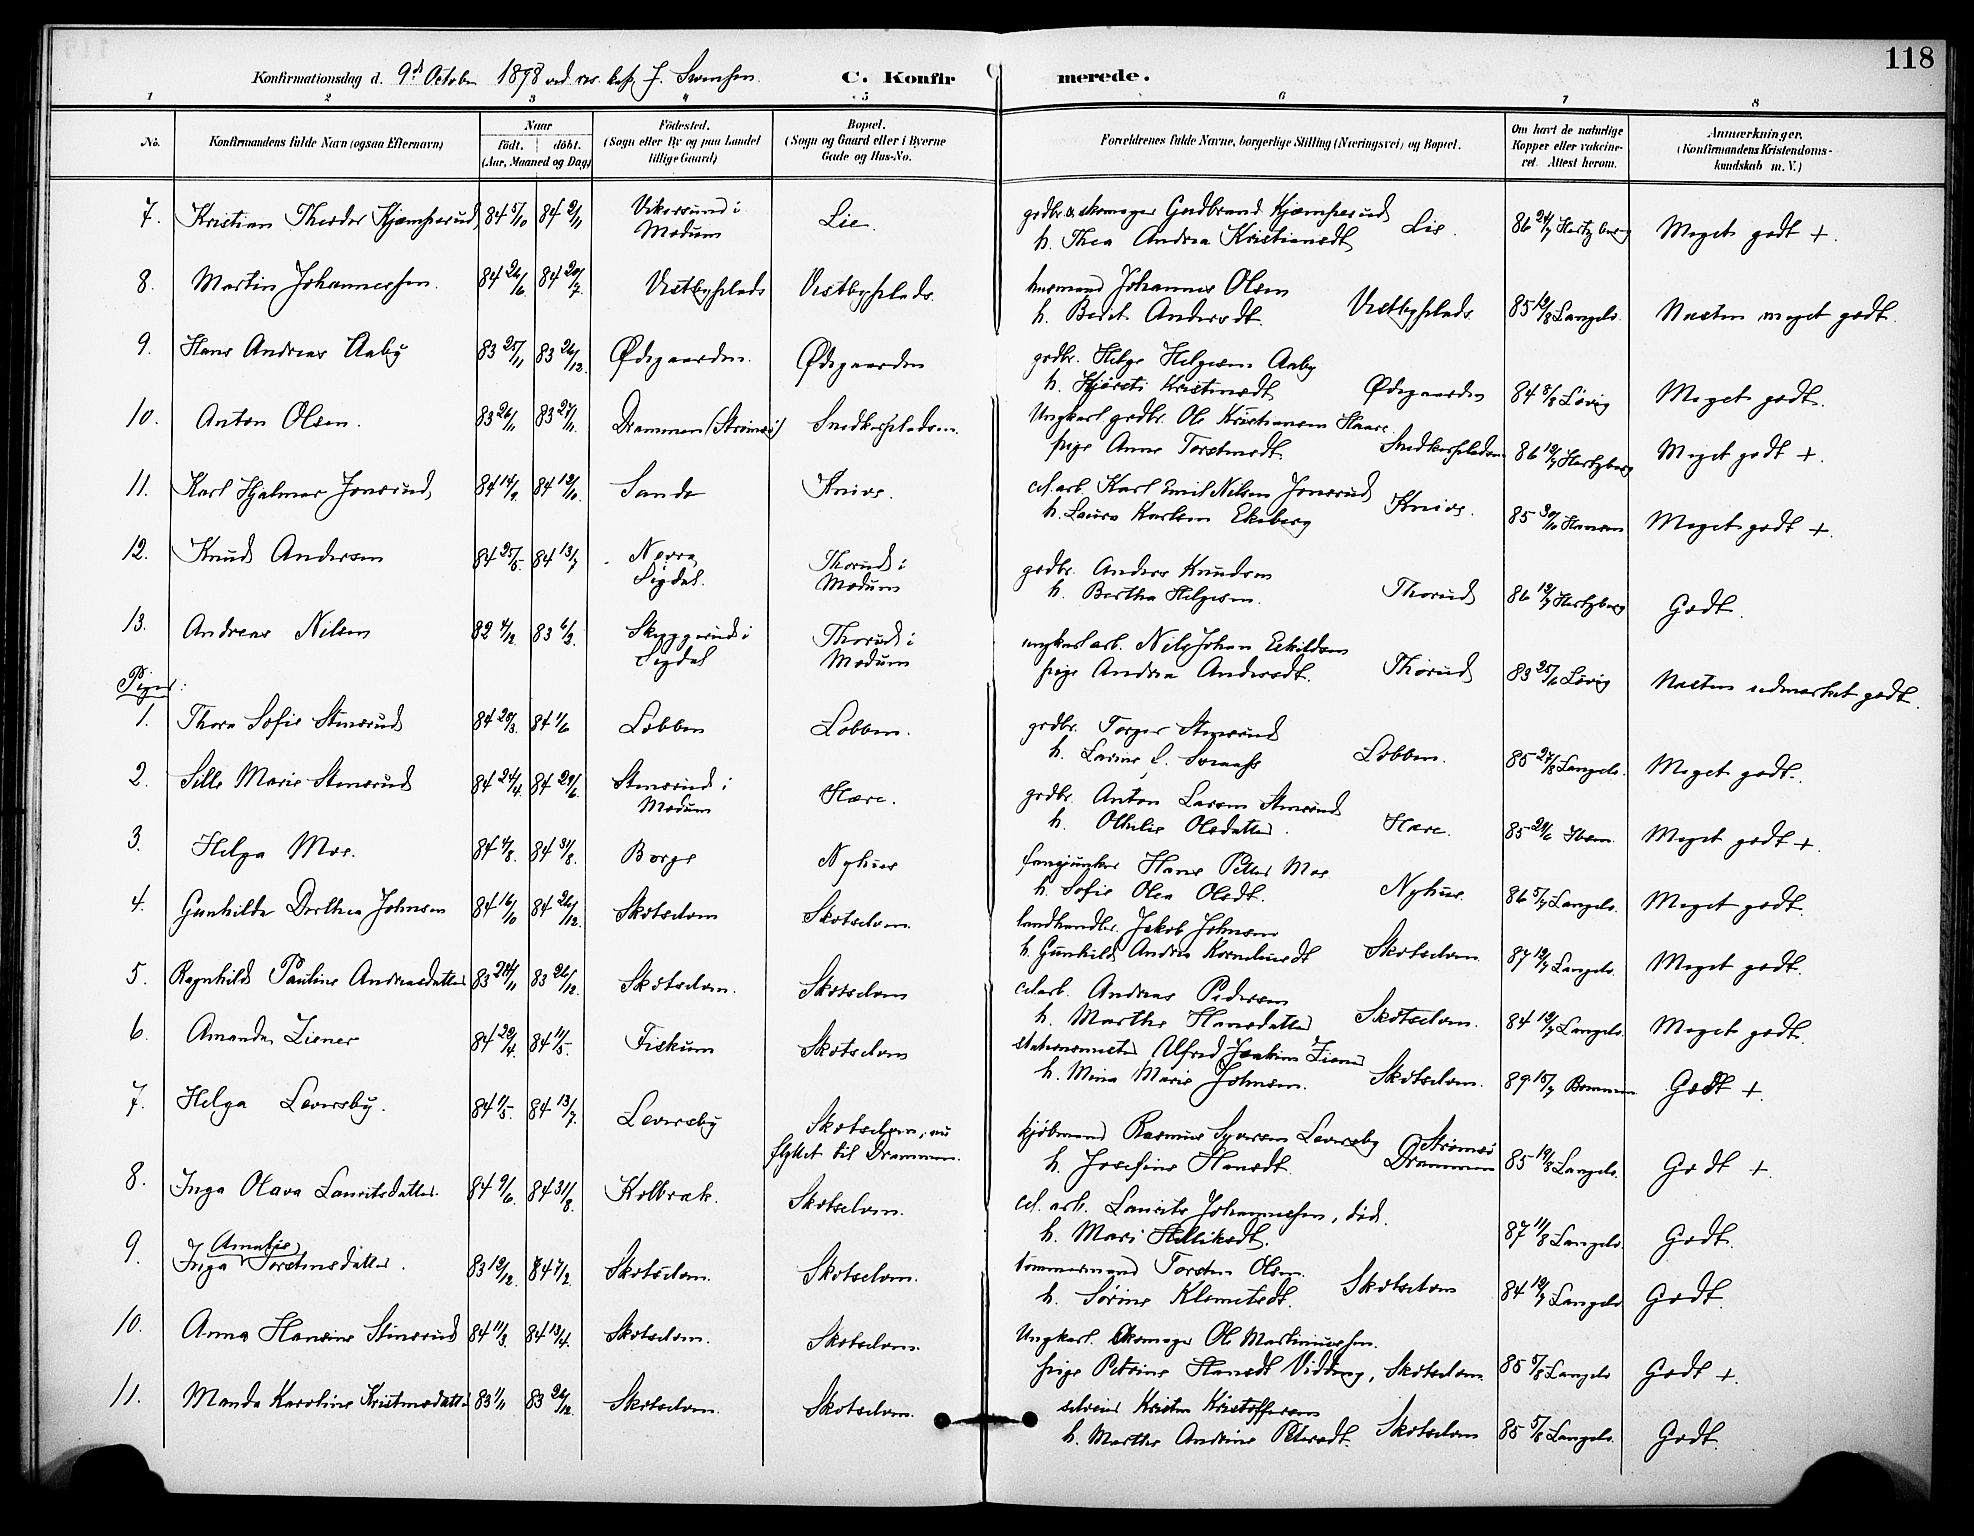 118
Konfirmationsdag d. 9de October 1898 ved J. Svensen. C. Konfirmerede.
1 2 3 4 5 6 7 8
No. Konfirmandens fulde Navn (ogsaa Efternavn) Naar födt. döbt. (Aar, Maaned og Dag) Födested. (Sogn eller By og paa Landet tillige Gaard) Bopæl. (Sogn og Gaard eller i Byerne Gade og Hus-No. Forældrenes fulde Navne, borgerlige Stilling (Næringsvei) og Bopæl. Om havt de naturlige Kopper eller vakcineret. Attest herom. Anmærkninger. (Konfirmandens Kristendomskundskab m. V.)
7. Kristian Theodor Kjæmperud 84 5/10 84 2/11 Vikersund i Modum Lie. grdbr. & skomager Gudbrand Kjæmperud h. Thea Andrea Kristiansdt Lie. 86 24/7 Hertzberg Meget godt +.
8. Martin Johannessen. 84 26/6 84 20/7 Vestbyplads Vestbyplads. husmand Johannes Olsen h. Berit Andersdt. Vestbyplads 85 19/8 Langels. Næsten meget godt.
9. Hans Andreas Aaby 83 25/11 83 26/12. Ødegaarden. Ødegaarden grdbr. Helge Helgesen Aaby h. Kjersti Kristensdt Ødegaarden 84 8/8 Lövig Meget godt.
10. Anton Olsen. 83 26/1 83 27/11. Drammen (Strømsø) Snedkerpladsen. Ungkarl grdbr. Ole Kristiansen Haare pige Anne Torstensdt. Snedkerpladsen 86 19/7 Hertzberg Meget godt +.
11. Karl Hjalmar Jonsrud 84 14/9. 84 12/10. Sande Knive. cel. arb. Karl Emil Nilsen Jonsrud h. Laura Karlsen Ekeberg Knive. 85 30/10 Hansen Meget godt +
12. Knud Andersen 84 25/5. 84 13/7 Nerra Sigdal. Thorud i Modum grdbr. Anders Knudsen h. Bertha Helgesen. Thorud 86 19/7 Hertzberg Godt.
13. Andreas Nilsen 82 4/12. 83 6/3. Skuggerud i Sigdal Thorud i Modum ungkarl arb. Nils Johan Eskildsen pige Andrea Andersdt. Thorud 83 25/6 Lövig Næsten udmærket godt.
Piger:
1. Thora Sofie Stensrud 84 20/3. 84 1/6 Lobben Lobben. grdbr. Torger Stensrud h. Larine L. Lobben. 85 27/8 Langels. Meget godt.
2. Sille Marie Stensrud 84 24/4. 84 29/6. Stensrud i Modum Hære. grdbr. Anton Larsen Stensrud h. Othilie Olsdatter. Hære. 85 29/6 Meget godt +.
3. Helga Moe. 84 4/8. 84 31/8. Borge Nyhus fanejunker Hans Petter Moe h. Sofie Olea Olsdt. Nyhus. 86 5/7 Langels. Meget godt.
4. Gunhilda Dorthea Johnsen 84 16/10 84 26/12. Skotselven Skotselven. landhandler. Jakob Johnsen h. Gunhild Andrea Korneliusdt Skotselven. 87 19/7 Langels. Meget godt.
5. Ragnhild Pauline Andreasdatter 83 28/11 83 26/12. Skotselven. Skotselven cel arb. Andreas Pedersen h. Marthe Hansdatter Skotselven. 84 19/7 Langels. Meget godt.
6. Amanda Ziener 84 29/4. 84 11/5. Fiskum Skotselven stationsmester Alfred Joakim Ziener h. Mina Marie Johnsen. Skotselven. 89 15/7 Bommen Godt +.
7. Helga Leversby. 84 11/5. 84 13/7. Leversby Skotselven; nu flyttet til Drammen. kjöbmand Rasmus Syversen Leversby h. Josefine Hansdt. Strømsø Drammen 85 19/8 Langels. Godt +
8. Inga Olava Lauritsdatter. 84 9/6. 84 31/8. Kolbræk. Skotselven. cel. arb. Laurits Johannessen, död. h. Mari Hellikdt. 87 11/8 Langels. Godt.
9. Inga Amalie Torstensdatter. 83 12/12. 84 7/2. Skotselven. Skotselven. tömmermand Torsten Olsen. h. Sörine Klemetsdt. Skotselven 84 19/7 Langels Godt.
10. Anna Hansine Stensrud 84 11/3. 84 13/4. Skotselven. Skotselven. Ungkarl. skomager Ole Martiniussen. pige Petrine Hansdt Skotselven 85 5/8 Langels Godt +.
11. Manda Karoline Kristensdatter 83 1/11 83 26/12. Skotselven. Skotselven. Kristen Kristoffersen h. Marthe Andrine Petersdt. Skotselven 85 5/8 Langels. Godt.